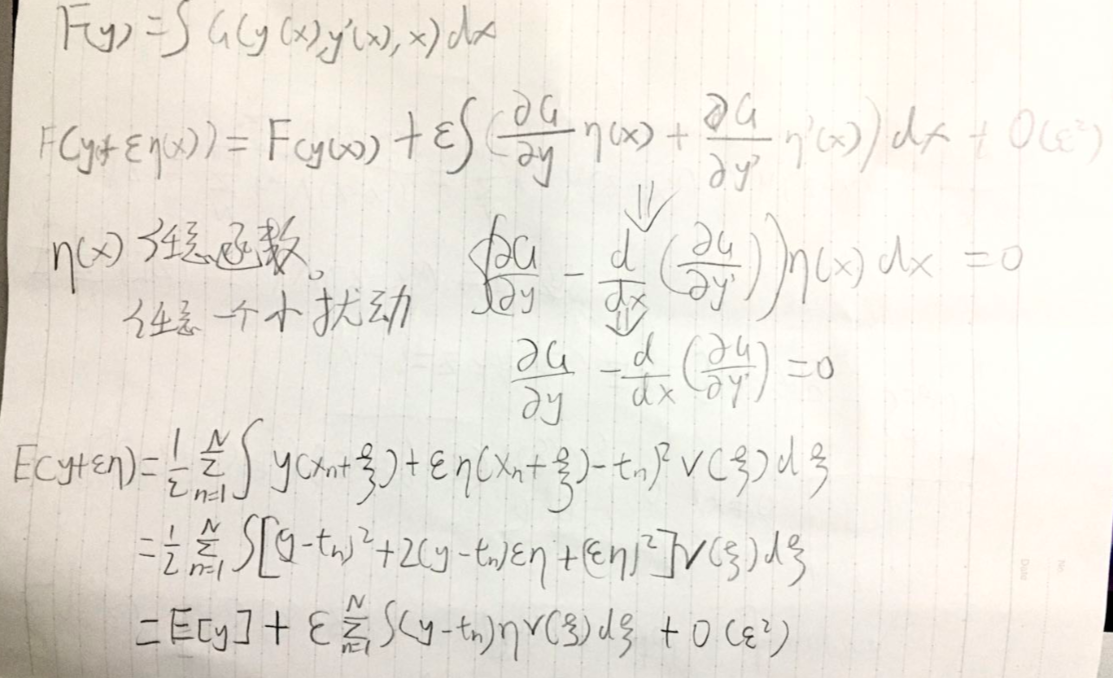 F(y) = ∫ G(y(x), y'(x), x) dx
F(y+εη(x)) = F(y(x)) + ε∫(∂G/∂y η(x) + ∂G/∂y' η'(x)) dx + O(ε²)
⇓
η(x) 任意函数。 ∫(∂G/∂y − d/dx (∂G/∂y'))η(x) dx = 0
任意一个小扰动 ⇓
∂G/∂y − d/dx (∂G/∂y') = 0
E(y+εη) = 1/2 Σ_{n=1}^{N} ∫ y(xₙ+ξ) + εη(xₙ+ξ) − tₙ)² ν(ξ) dξ
= 1/2 Σ_{n=1}^{N} ∫[(y−tₙ)² + 2(y−tₙ)εη + (εη)²] ν(ξ) dξ
= E[y] + ε Σ_{n=1}^{N} ∫(y−tₙ) η ν(ξ) dξ + O(ε²)